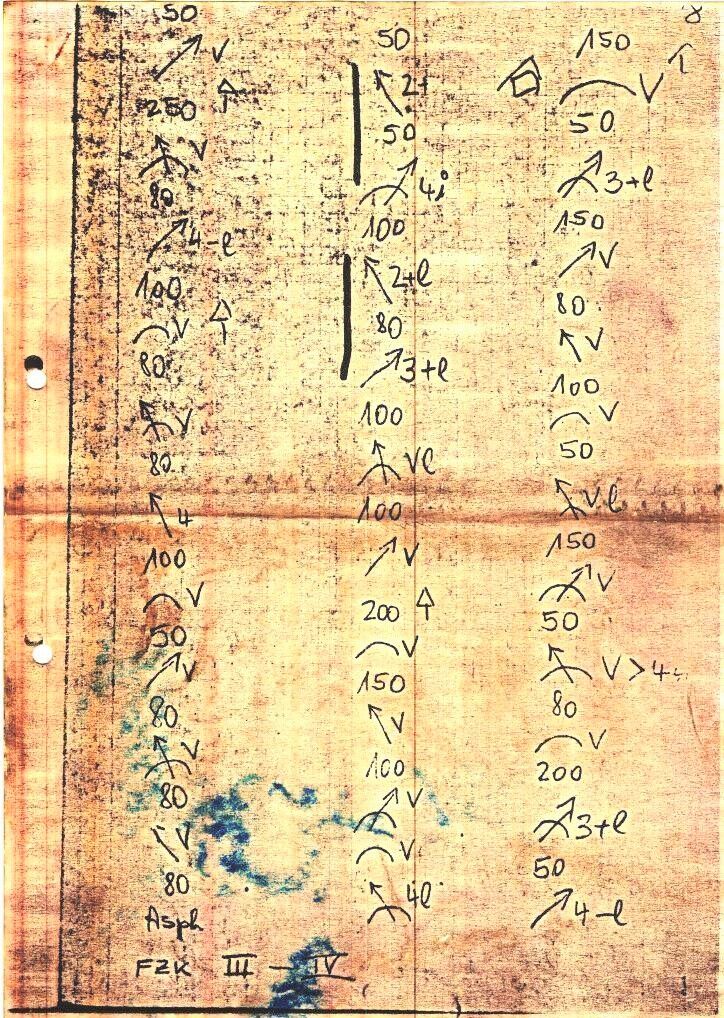 50
V
250
V
80
4-l
100
V
80
V
80
4
100
V
50
V
80
V
80
V
80
Asph
FZK III - IV
50
2+
50
4i
100
2+l
80
3+l
100
Vl
100
V
200
V
150
V
100
V
V
4l
8
150
V
50
3+l
150
V
80
V
100
V
50
Vl
150
V
50
V > 4
80
V
200
3+l
50
4-l